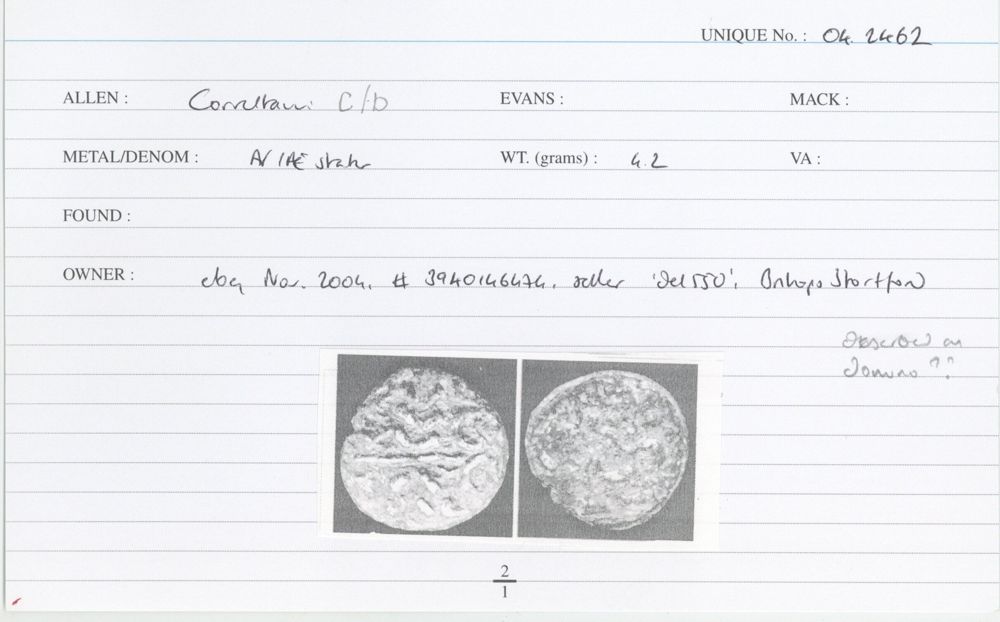 UNIQUE No. : 04. 2462
ALLEN : Corieltauvi C/D EVANS : MACK :
METAL/DENOM : AV/AE stater WT. (grams) : 4.2 VA :
FOUND :
OWNER : ebay Nov. 2004, # 3940146474, seller 'del550', Bishops Stortford
Described as
Domino ??
2
1